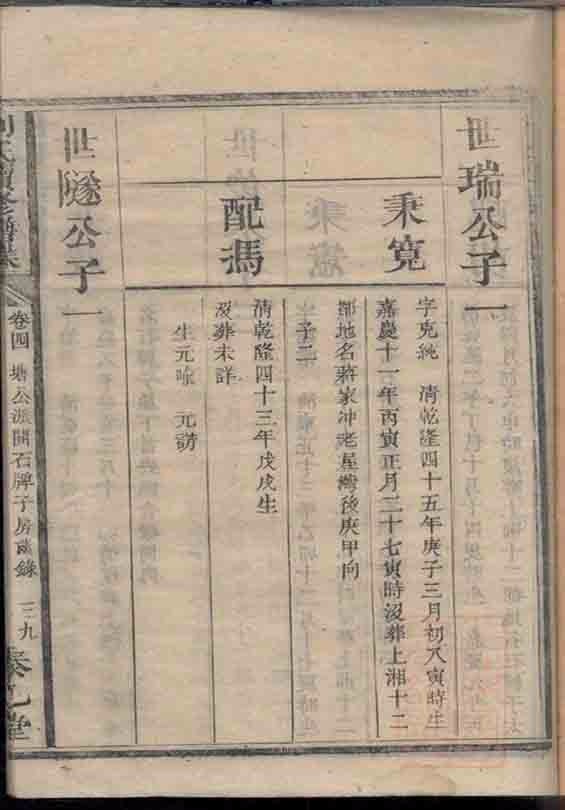 世瑞公子一
秉寬
字克純 清乾隆四十五年庚子三月初八寅時生
嘉慶十一年丙寅正月二十七寅時沒葬上湘十二
都地名蔣家冲老屋灣後庚甲向
子二
配馮
清乾隆四十三年戊戌生
沒葬未詳
生元咏 元謗
世隧公子一
卷四 塘公派開石牌子房齒錄 三九